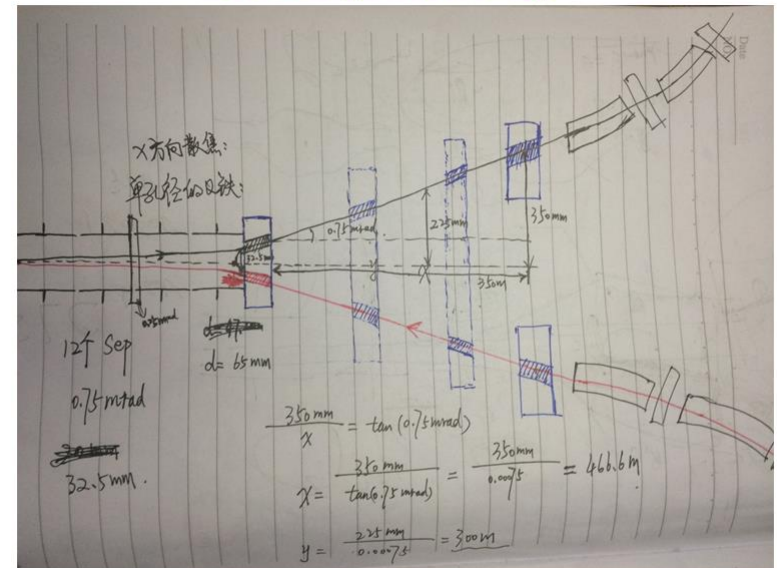 Date
NO.
X方向散焦:
单孔径的Q铁:
0.75mrad
32.5mm
225mm
350mm
y
X
350m
0.75mrad
12个 Sep
0.75 mrad
32.5mm.
d= 65mm
350mm / X = tan(0.75mrad)
X= 350mm / tan(0.75mrad) = 350mm / 0.0075 = 466.6m
y= 225mm / 0.0075 = 300m